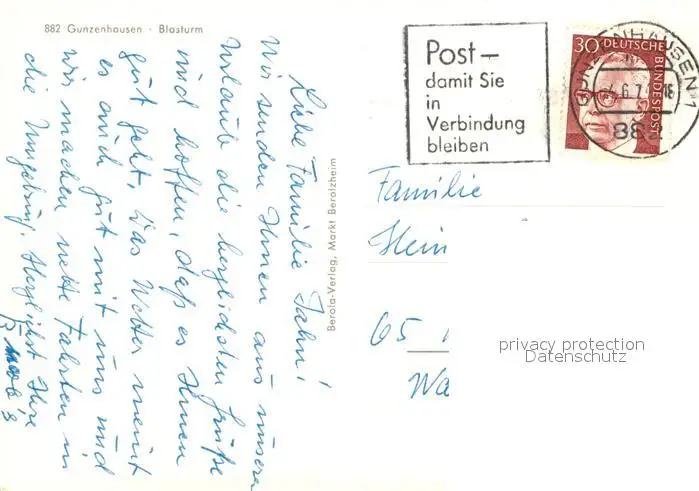 882 Gunzenhausen · Blasturm
Liebe Familie Jahn!
Wir senden Ihnen aus unserem
Urlaub die herzlichsten Grüße
und hoffen, daß es Ihnen
gut geht. Das Wetter meint
es auch gut mit uns und
wir machen nette Fahrten in
die Umgebung. Herzlichst Ihre
Berola-Verlag, Markt Berolzheim
Post—
damit Sie
in
Verbindung
bleiben
30 DEUTSCHE BUNDESPOST
GUNZENHAUSEN
882
Familie
Hein
65
Wa
privacy protection
Datenschutz